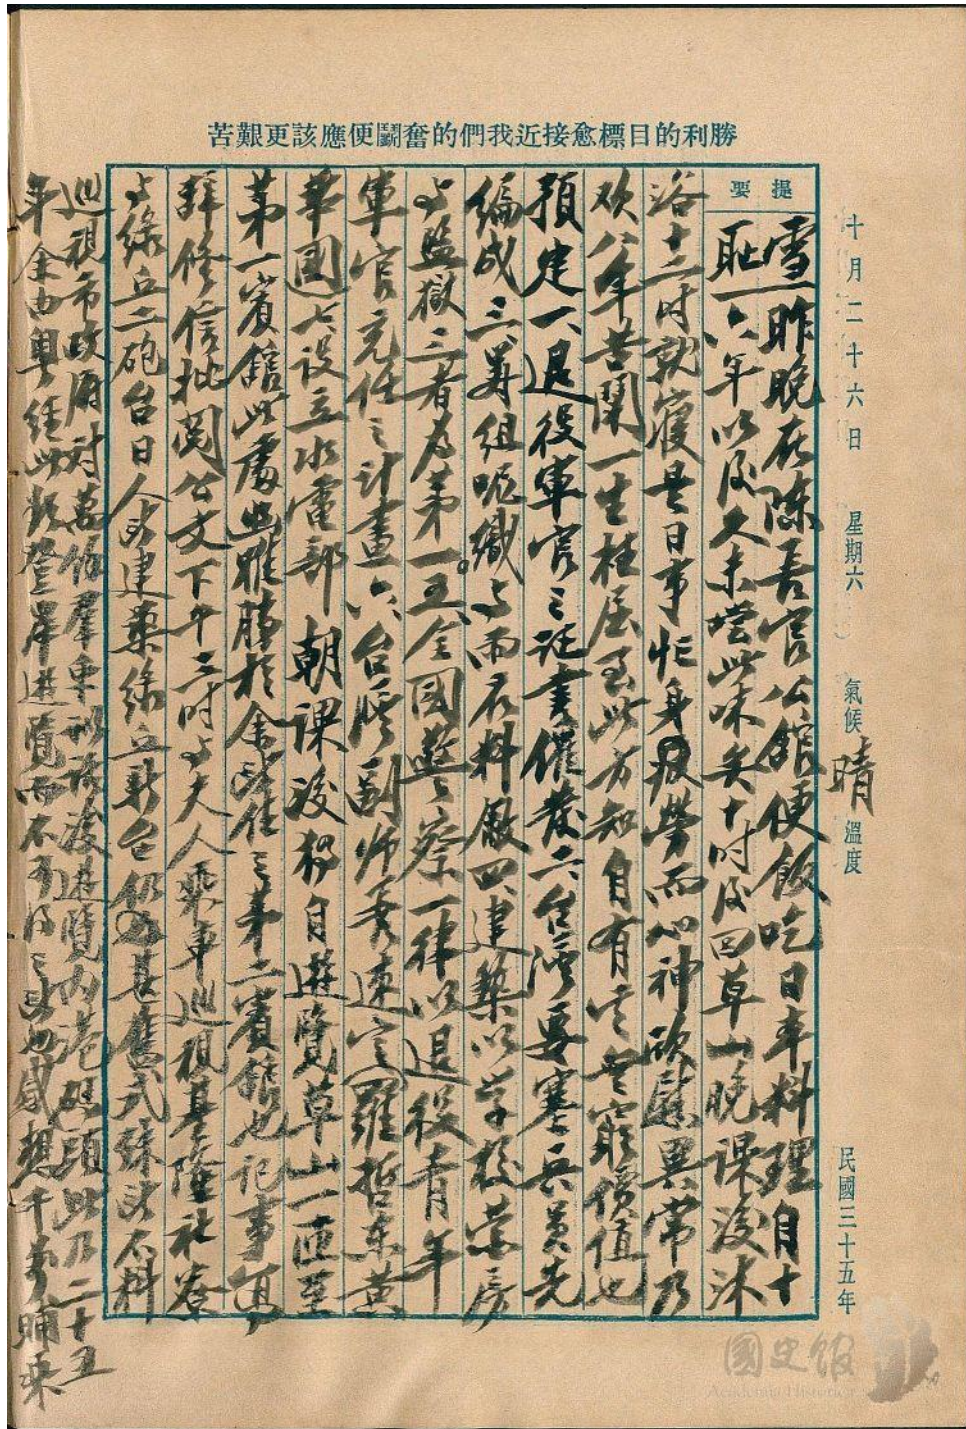 勝利的目標愈接近我們的奮鬪便應該更艱苦
十月二十六日 星期六 氣候 晴 溫度 民國三十五年
提要
雪昨晚在陳長官公館便飯吃日本料理自十
恥一、六年以後久未嘗此味矣十時後回草山晚課後沐
浴十二時就寢是日事忙身疲勞而心神欣慰異常乃
歎八年苦鬪一生枉屈至此方知自有其無窮價值也
預定一、退役軍官之證書催發二、台灣要塞兵員先
編成三、籌組呢織與雨衣料廠四、建築以學校營房
與監獄三者為第一。五、全國警察一律以退役青年
軍官充任之計畫六、台灣副師長速定羅哲東黃
華國七、設立水電部 朝課後獨自遊覽草山一匝至
第一賓館此處幽雅勝於余所住之第二賓館也記事寫
拜修信批閱公文下午三時與夫人乘車巡視基隆社寮
與綠丘二砲台日人所建築綠丘新台仍為甚舊式殊所不料
巡視市政府對萬餘羣眾訓話後遊覽內港碼頭此乃二十五
年余由粵經此擬登岸遊覽而不可得之處也感想千萬晡乘
國史館
Academia Historica